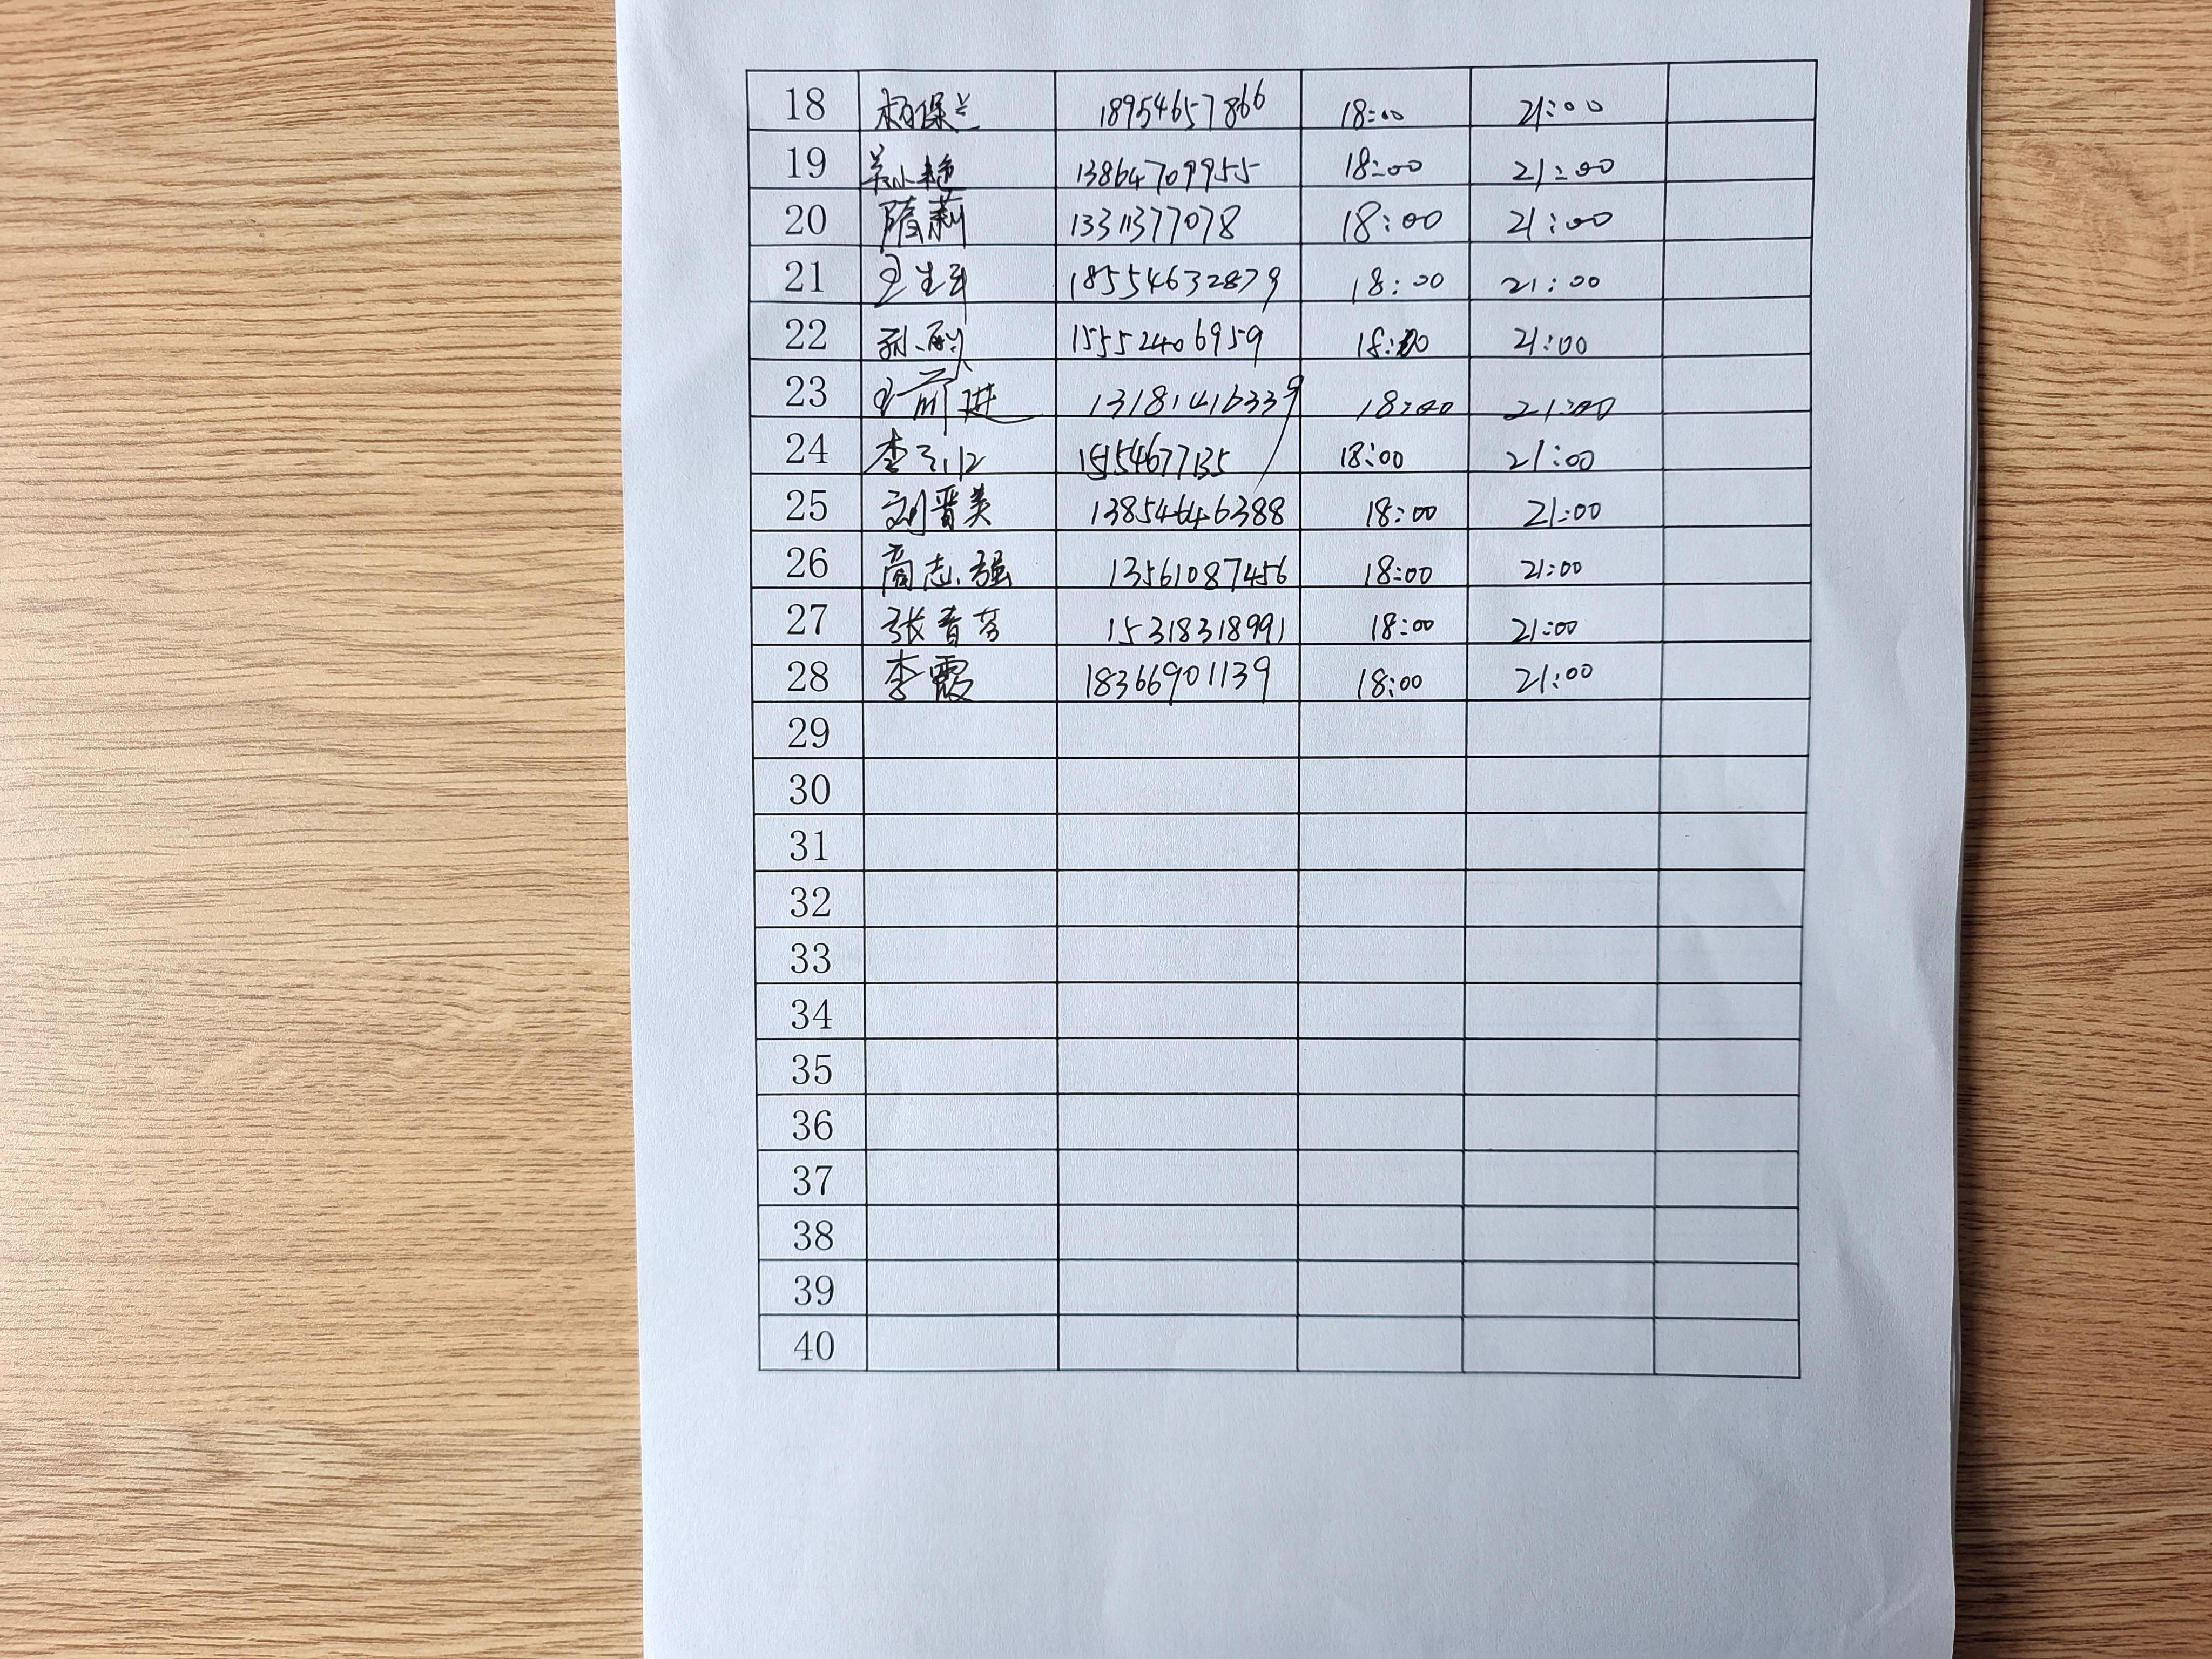 18 杨保兰 18954657866 18:00 21:00
19 13864709955 18:00 21:00
20 隋莉 13311377078 18:00 21:00
21 18554632879 18:00 21:00
22 孙 15552406959 18:00 21:00
23 王前进 13181416339 18:00 21:00
24 李 18:00 21:00
25 刘晋美 13854646388 18:00 21:00
26 商志强 13561087456 18:00 21:00
27 张春芳 15318318991 18:00 21:00
28 李霞 18366901139 18:00 21:00
29
30
31
32
33
34
35
36
37
38
39
40